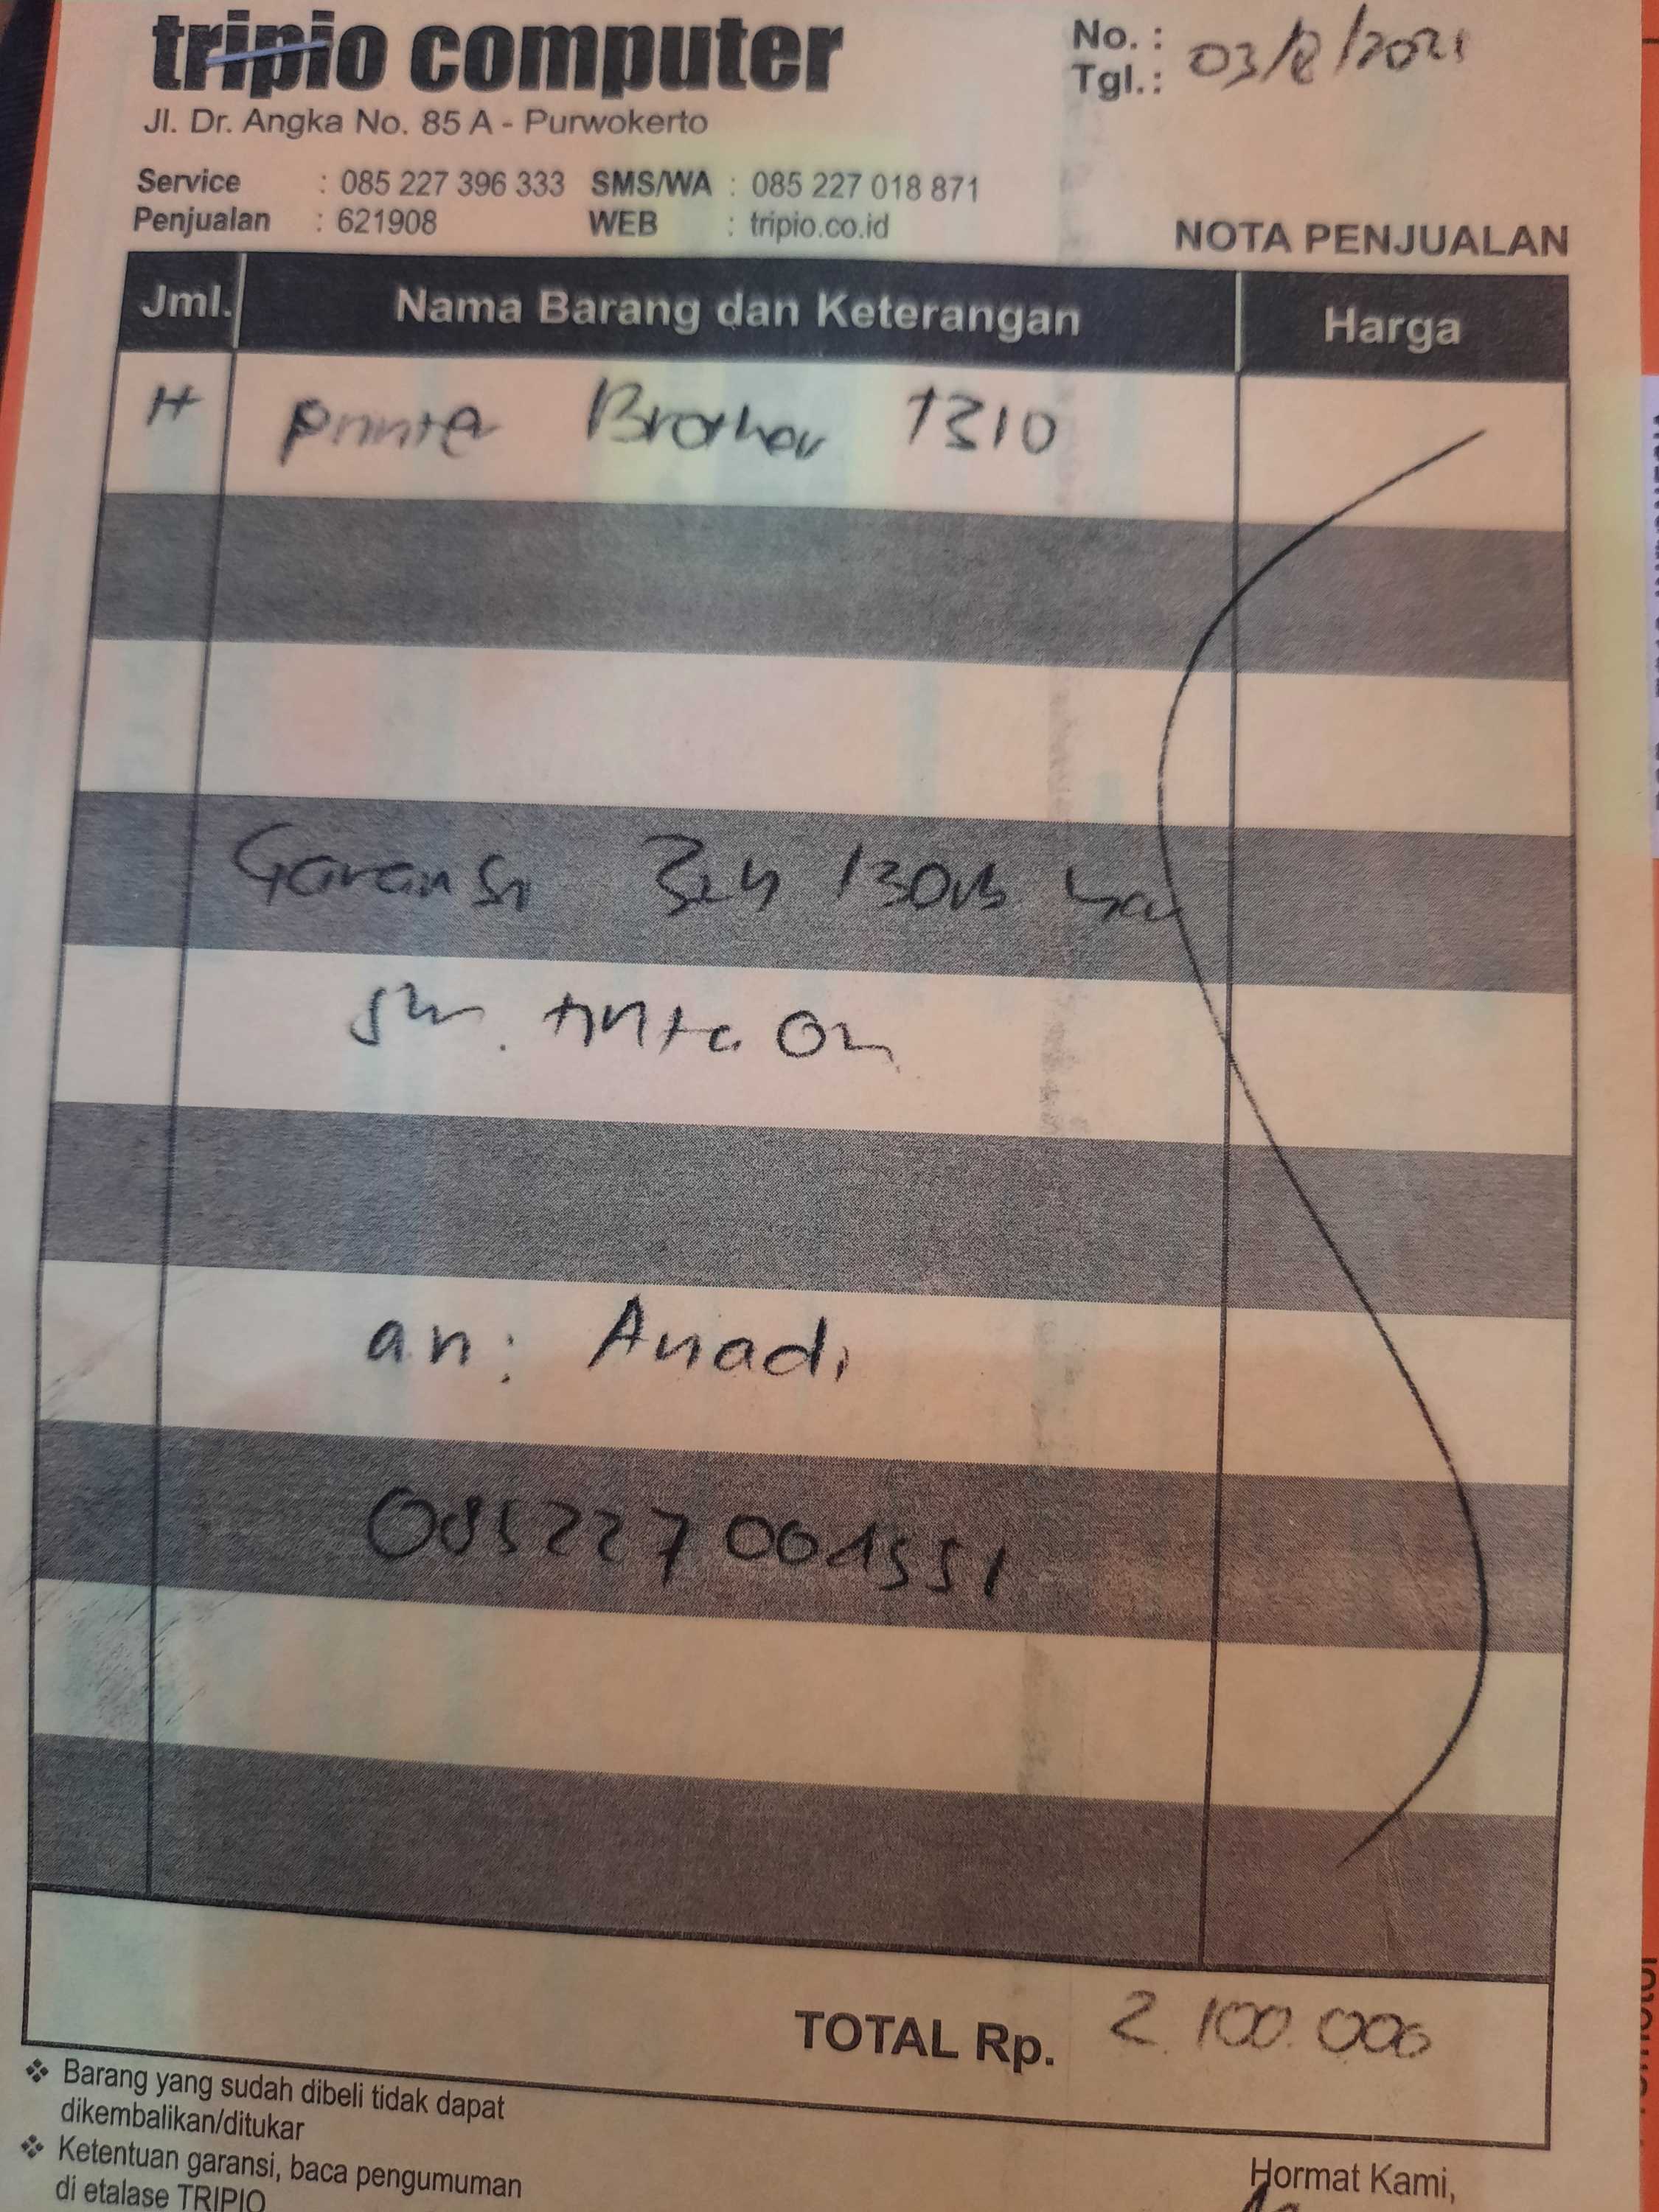 tripio computer
Jl. Dr. Angka No. 85 A - Purwokerto
No. :
Tgl. : 03/8/2021
Service : 085 227 396 333 SMS/WA : 085 227 018 871
Penjualan : 621908 WEB : tripio.co.id
NOTA PENJUALAN
Jml. Nama Barang dan Keterangan Harga
Printer Brother T310
Garansi
tinta
an: Anadi
085227001551
TOTAL Rp. 2.100.000
❖ Barang yang sudah dibeli tidak dapat
dikembalikan/ditukar
❖ Ketentuan garansi, baca pengumuman
di etalase TRIPIO
Hormat Kami,